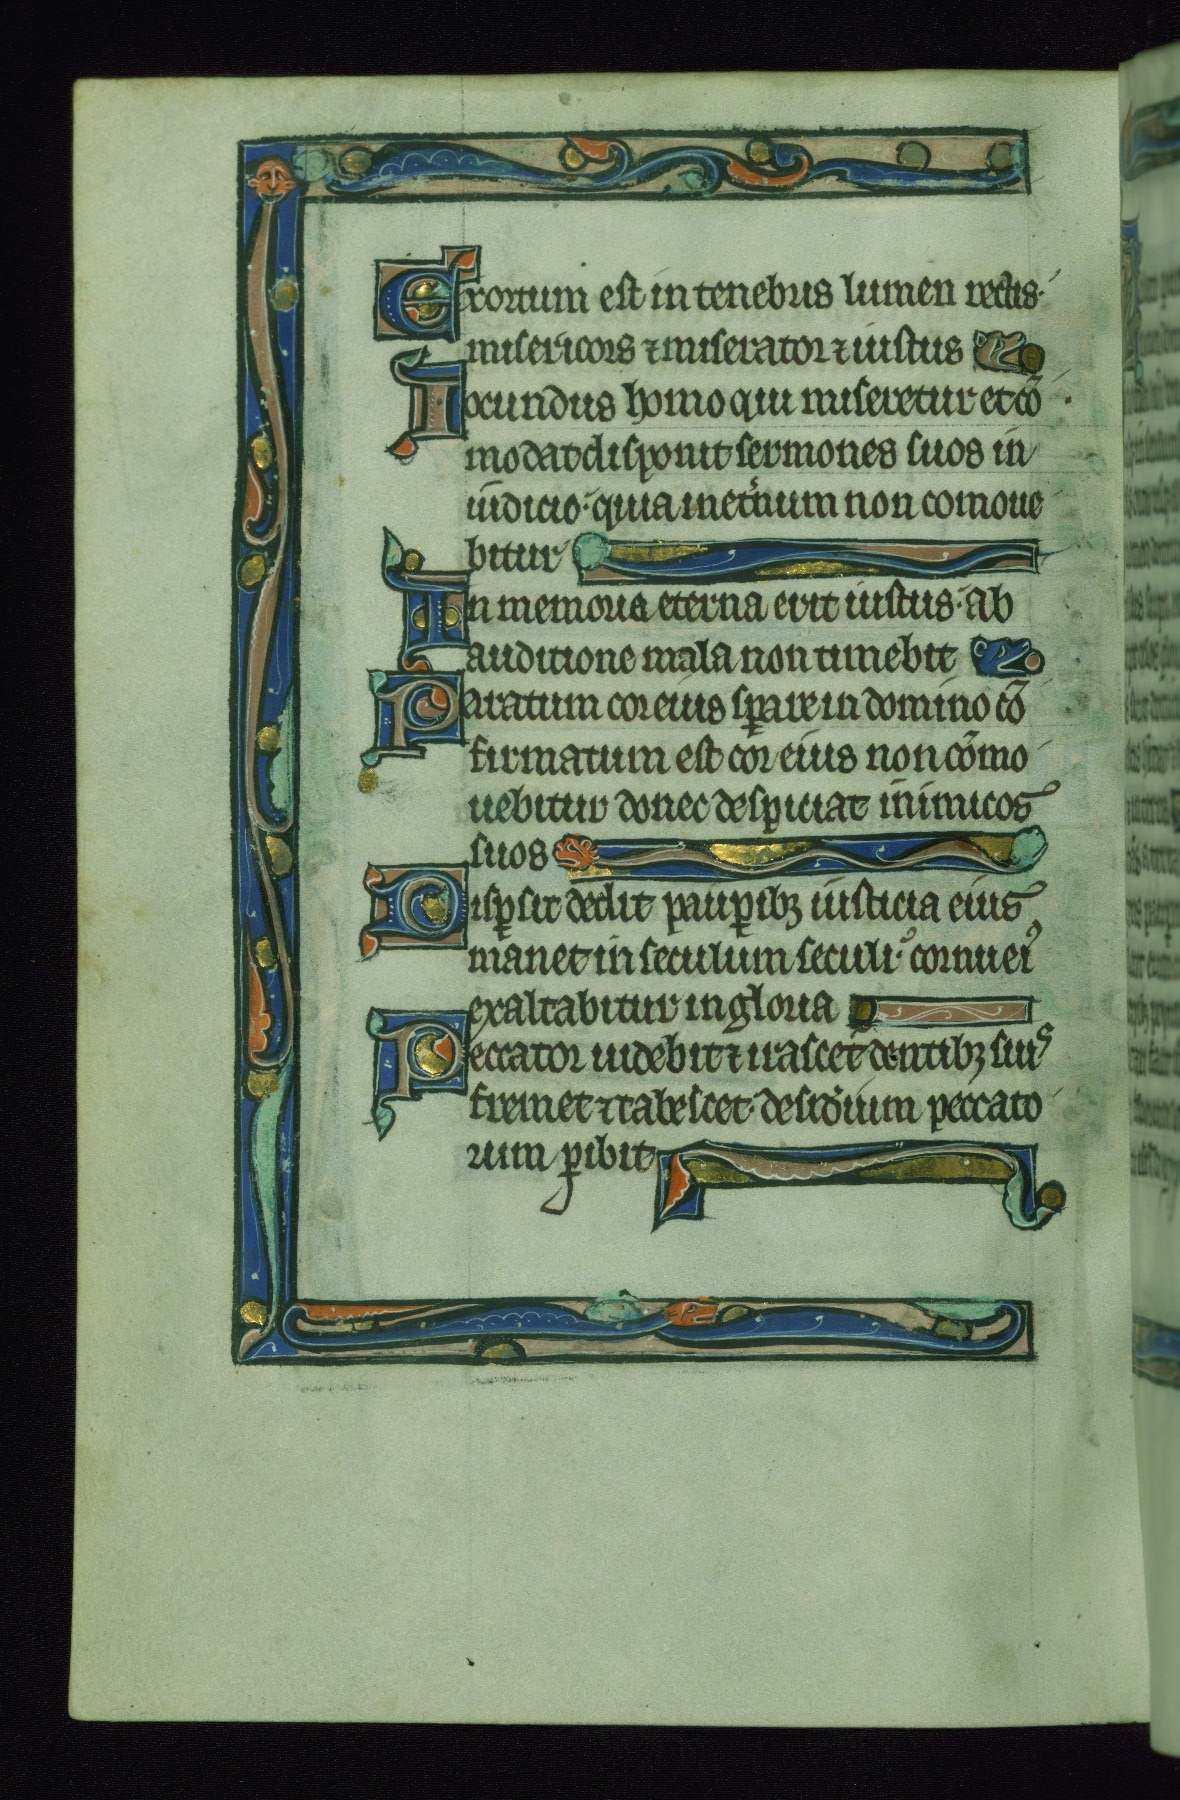 Exortum est in tenebris lumen rectis·
misericors ⁊ miserator ⁊ iustus
Iocundus homo qui miseretur et cō
modat disponit sermones suos in
iudicio· quia inet̉num non comoue
bitur
In memoria eterna erit iustus· ab
auditione mala non timebit
Paratum cor eius sꝑare in domino cō
firmatum est cor eius non cōmo
uebitur donec despiciat inimicos
suos
Disꝑsit dedit pauꝑibꝫ iusticia eius
manet in seculum seculi· cornu eiꝰ
exaltabitur in gloria
Peccator uidebit ⁊ irascet̉ dentibꝫ suis
fremet ⁊ tabescet· desid̉ium peccato
rum ꝑibit